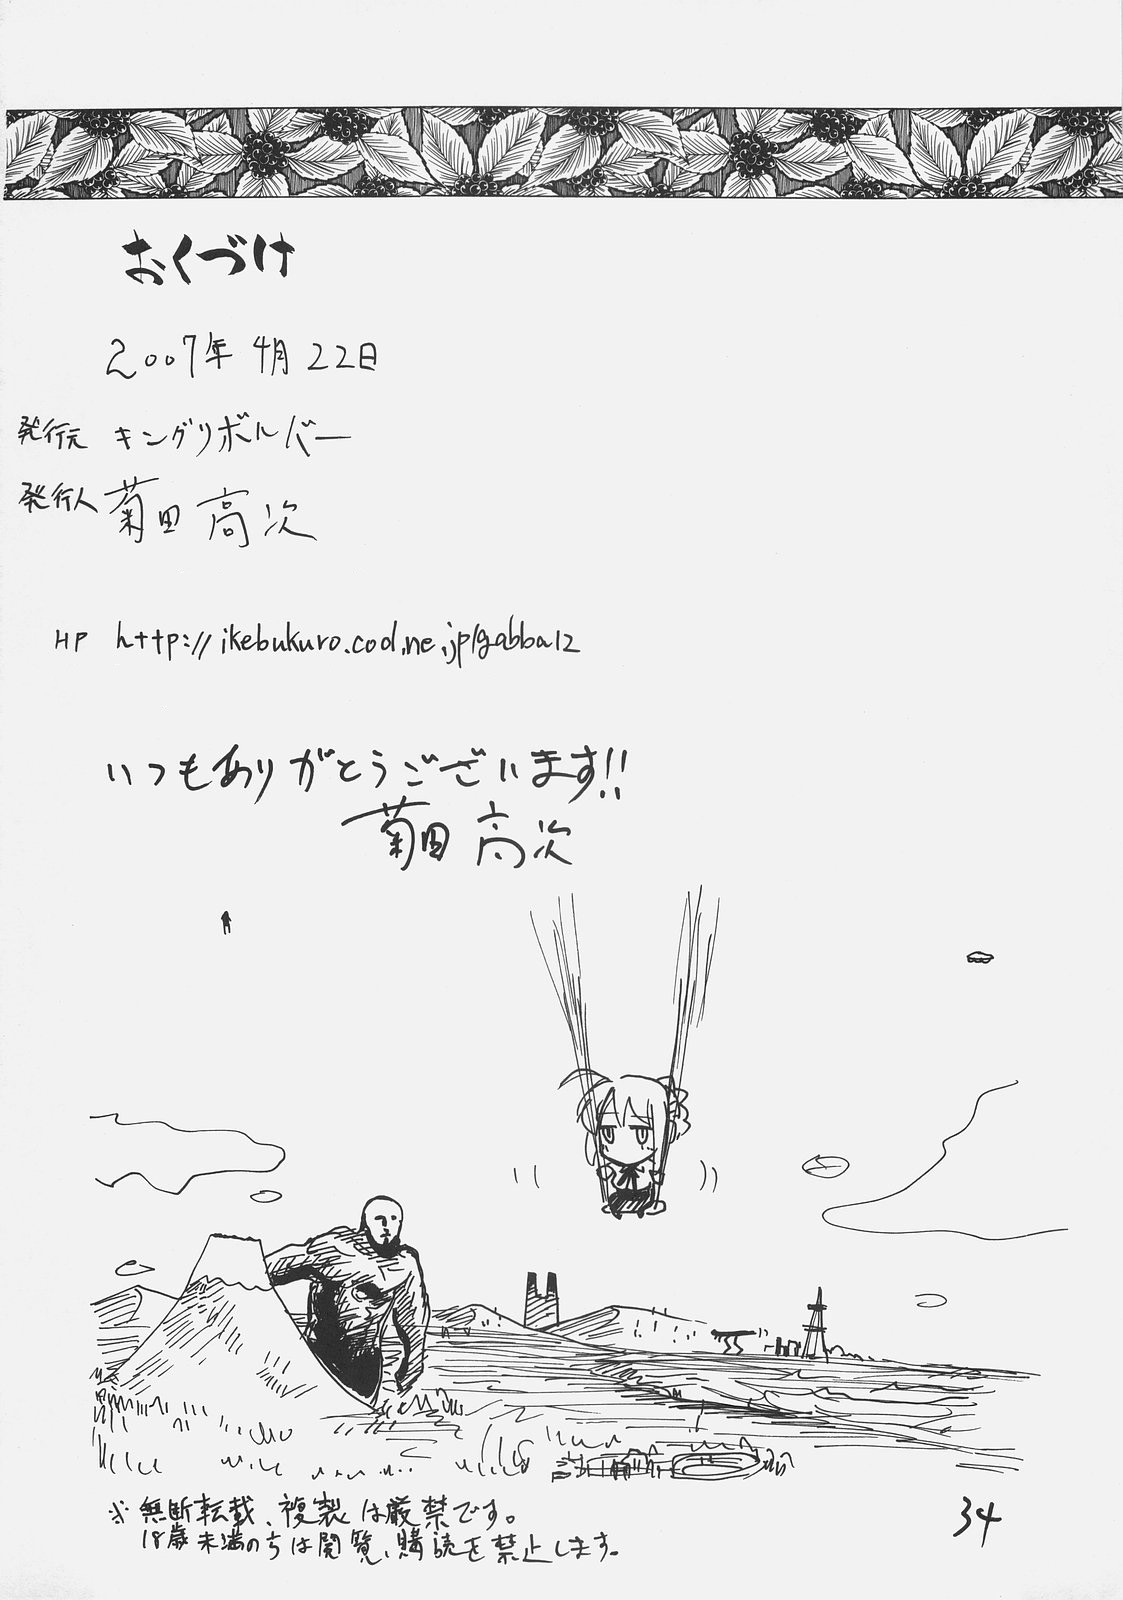 おくづけ
2007年4月22日
発行元 キングリボルバー
発行人 菊田高次
HP http://ikebukuro.cool.ne.jp/gabba12
いつもありがとうございます!!
菊田高次
※無断転載、複製は厳禁です。
18歳未満の方は閲覧、購読を禁止します。
34